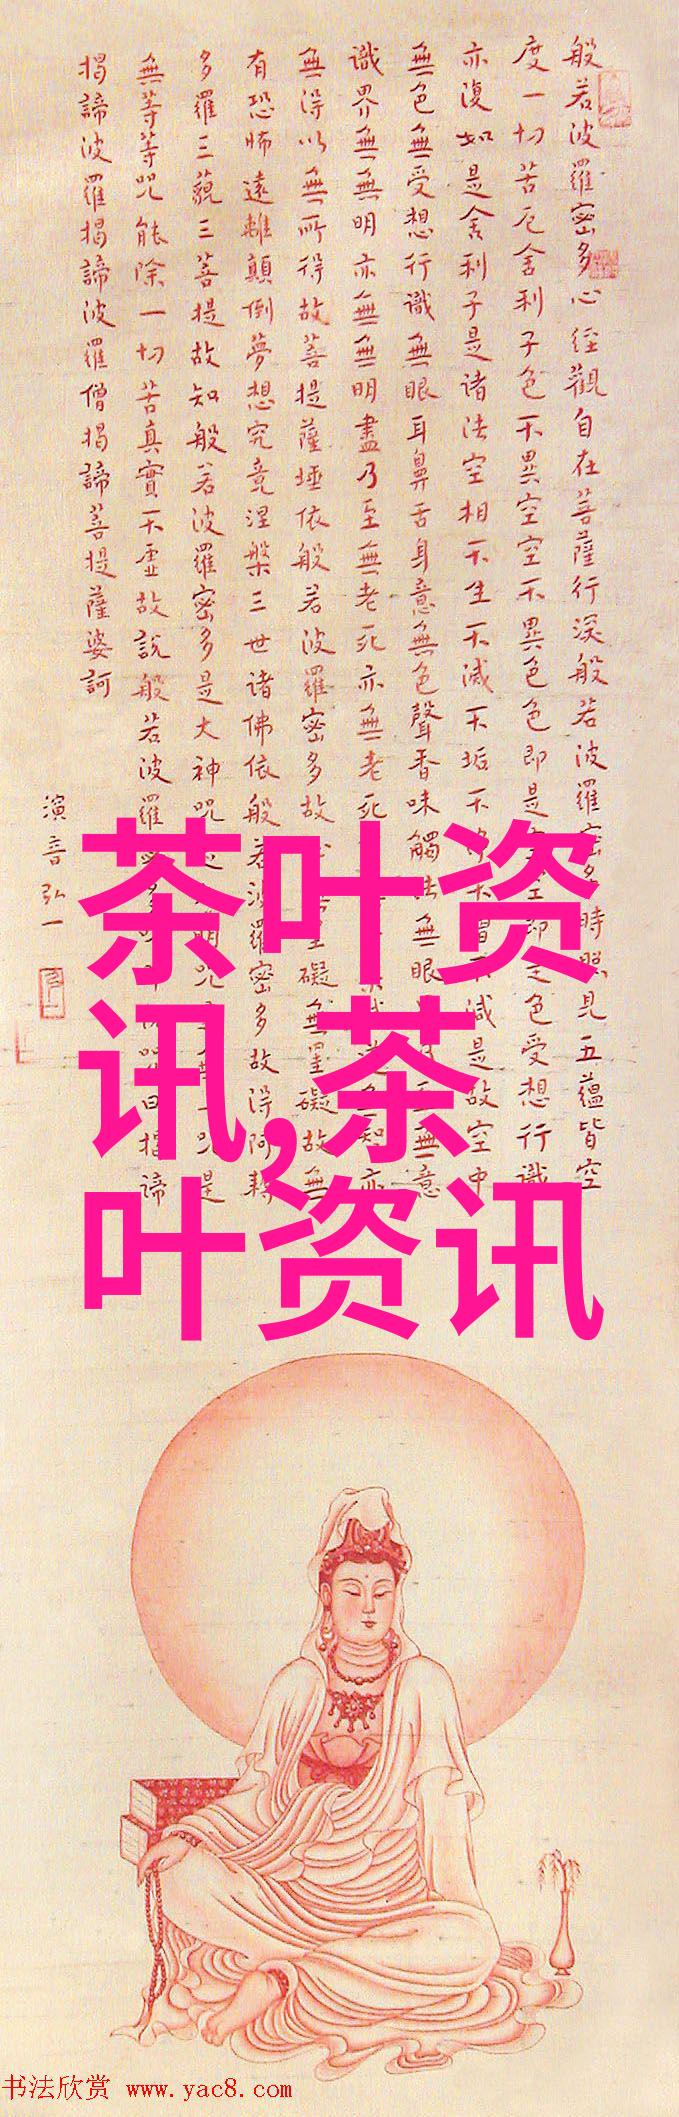 般若波羅密多心經觀自在菩薩行深般若波羅密多時照見五蘊皆空
度一切苦厄舍利子色不異空空不異色色即是空空即是色受想行識
亦復如是舍利子是諸法空相不生不滅不垢不淨不增不減是故空中
無色無受想行識無眼耳鼻舌身意無色聲香味觸法無眼界乃至無意
識界無無明亦無無明盡乃至無老死亦無老死滅道無知亦
無得以無所得故菩提薩埵依般若波羅密多故心無罣礙無罣礙故無
有恐怖遠離顛倒夢想究竟涅槃三世諸佛依般若波羅密多故得阿耨
多羅三藐三菩提故知般若波羅密多是大神咒是明咒是無咒是
無等等咒能除一切苦真實不虛故說般若波羅密多咒即說咒曰揭諦
揭諦波羅揭諦波羅僧揭諦菩提薩婆訶
演音弘一
茶叶资
讯,茶
叶资讯
书法欣赏 www.yac8.com